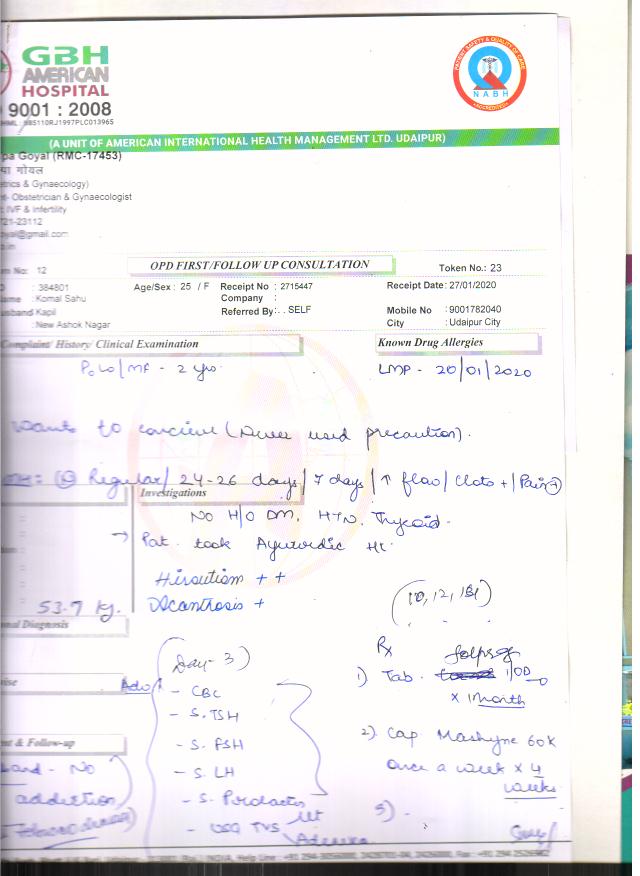 GBH
AMERICAN
HOSPITAL
9001 : 2008
PATIENT SAFETY & QUALITY OF CARE
NABH
(A UNIT OF AMERICAN INTERNATIONAL HEALTH MANAGEMENT LTD. UDAIPUR)
pa Goyal (RMC-17453)
पा गोयल
trics & Gynaecology)
Obstetrician & Gynaecologist
IVF & infertility
721-23112
oyal@gmail.com
OPD FIRST/FOLLOW UP CONSULTATION
Token No.: 23
m No: 12
: 384801
Age/Sex : 25 / F
Receipt No : 2715447
Receipt Date: 27/01/2020
ame : Komal Sahu
Company :
usband Kapil
Referred By: . . SELF
Mobile No : 9001782040
: New Ashok Nagar
City : Udaipur City
Complaint/ History/ Clinical Examination
Known Drug Allergies
PoLo/MF - 2 yrs.
LMP - 20/01/2020
wants to concieve (Never used precaution).
Regular/ 24-26 days/ 7 days/ ↑ flow/ Clots +/ Pain +
Investigations
NO H/O DM, HTN, Thyroid.
→ Pat. took Ayurvedic
Hirsutism + +
53.7 Kg.
Acantrosis +
nal Diagnosis
(10, 12, 131)
Rx
(Day - 3)
1) Tab. 1 OD
x 1 month
vise
Adv
- CBC
- S. TSH
- S. FSH
- S. LH
- S. Prolactin
- USG TVS
2) Cap Mashyne 60K
once a week x 4
weeks
nt & Follow-up
- No
addiction
3) -